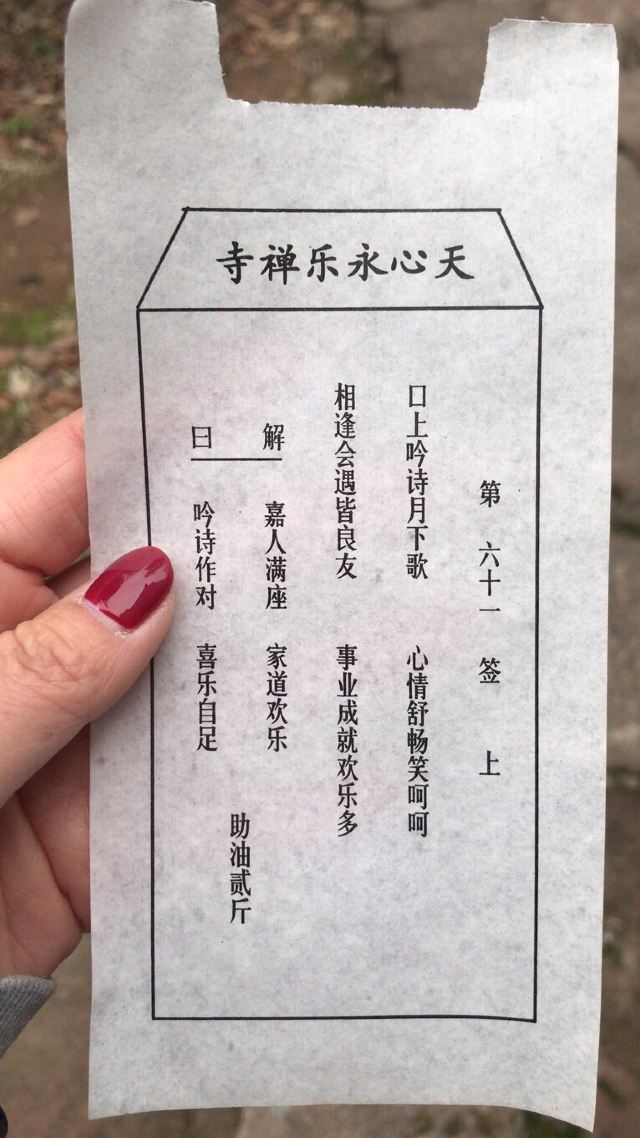 天心永乐禅寺
第六十一签 上
口上吟诗月下歌 心情舒畅笑呵呵
相逢会遇皆良友 事业成就欢乐多
解曰
嘉人满座 家道欢乐
吟诗作对 喜乐自足
助油贰斤